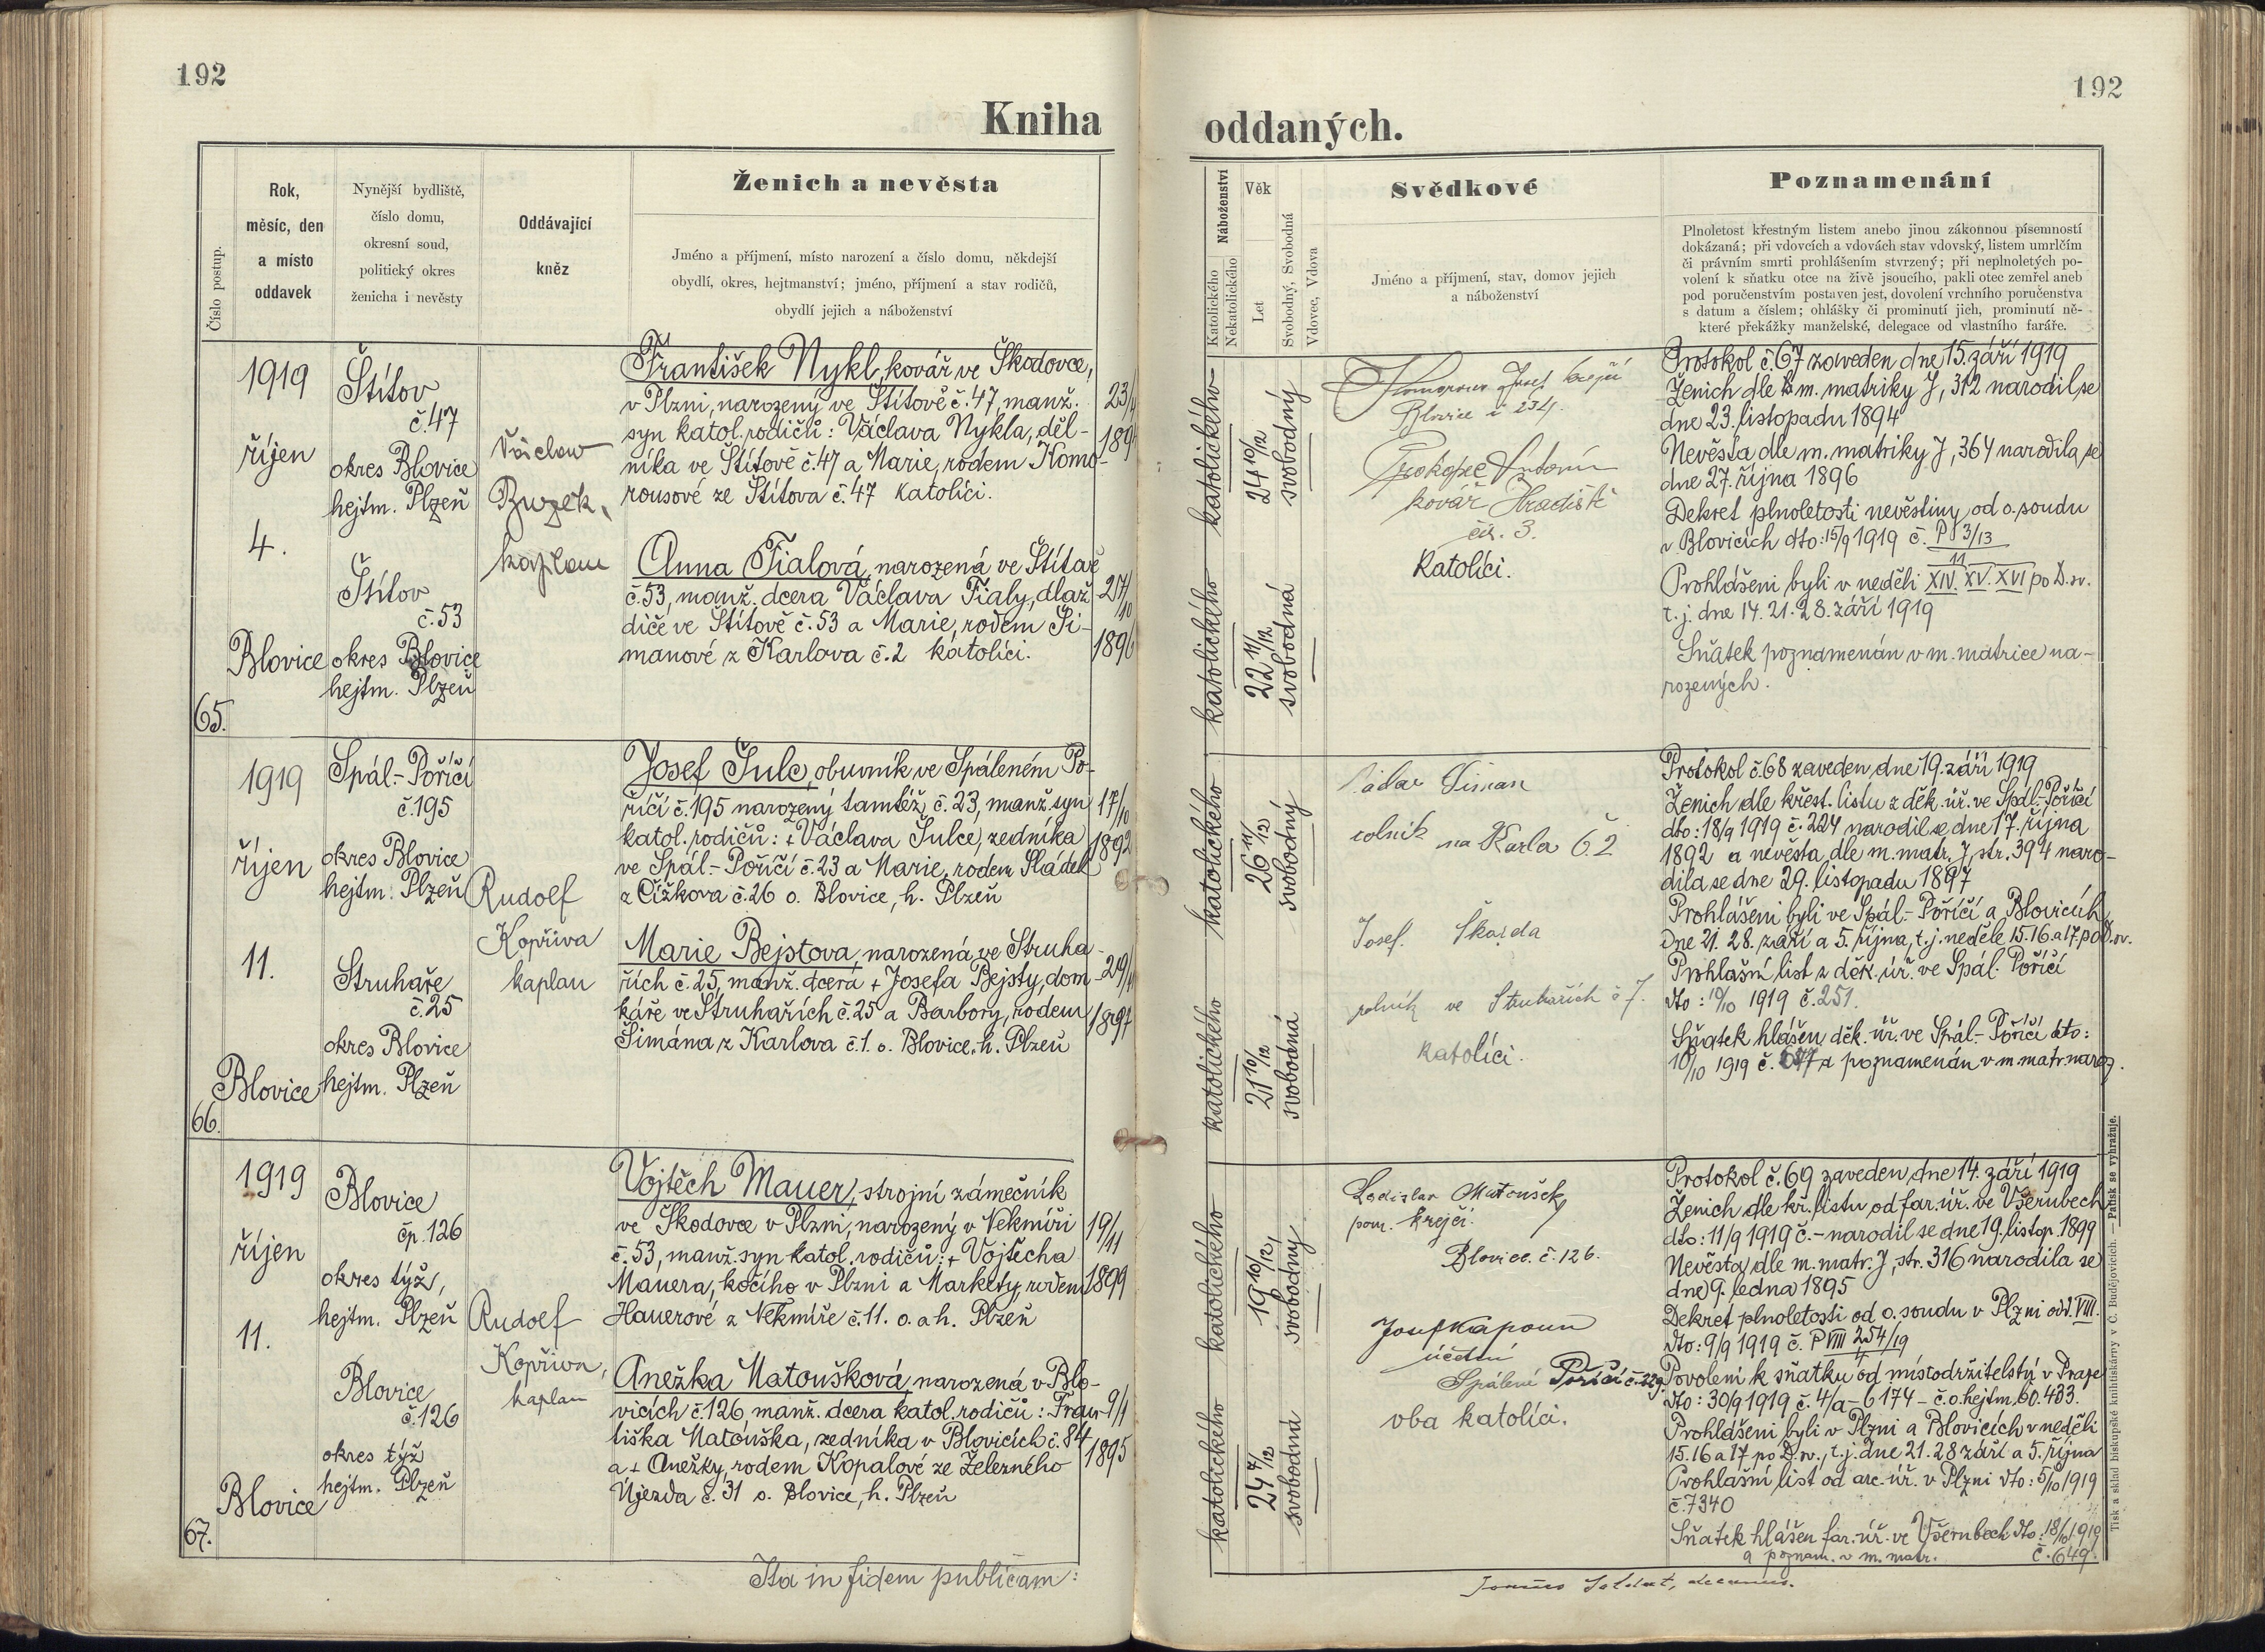 192
192
Kniha
oddaných.
Číslo postup.
Rok,
měsíc, den
a místo
oddavek
Nynější bydliště,
číslo domu,
okresní soud,
politický okres
ženicha i nevěsty
Oddávající
kněz
Ženich a nevěsta
Jméno a příjmení, místo narození a číslo domu, někdejší
obydlí, okres, hejtmanství; jméno, příjmení a stav rodičů,
obydlí jejich a náboženství
Náboženství
Katolického
Nekatolického
Věk
Let
Svobodný, Svobodná
Vdovec, Vdova
Svědkové
Jméno a příjmení, stav, domov jejich
a náboženství
Poznamenání
Plnoletost křestným listem anebo jinou zákonnou písemností
dokázaná; při vdovcích a vdovách stav vdovský, listem umrlčím
či právním smrti prohlášením stvrzený; při neplnoletých po-
volení k sňatku otce na živě jsoucího, pakli otec zemřel aneb
pod poručenstvím postaven jest, dovolení vrchního poručenstva
s datum a číslem; ohlášky či prominutí jich, prominutí ně-
které překážky manželské, delegace od vlastního faráře.
65.
1919
říjen
4.
Blovice
Štítov
č.47
okres Blovice
hejtm. Plzeň
Štítov
č.53
okres Blovice
hejtm. Plzeň
Václav
Buzek,
kaplan
František Nykl, kovář ve Škodovce,
v Plzni, narozený ve Štítově č.47, manž.
syn katol. rodičů: Václava Nykla, děl-
níka ve Štítově č.47 a Marie, rodem Komo-
rousové ze Štítova č.47 katolíci.
23/11
1894
Anna Fialová, narozená ve Štítově
č.53, manž. dcera Václava Fialy, dlaž
diče ve Štítově č.53 a Marie, rodem Ši-
manové z Karlova č.2 katolíci.
27/10
1896
katolického
24 10/12
svobodný
katolického
22 11/12
svobodná
Josef krejčí
Blovice č 234.
Prokopec Antonín
kovář Hradiště
čís. 3.
Katolíci.
Protokol č.67 zaveden dne 15. září 1919
Ženich dle m. matriky J, 312 narodil se
dne 23. listopadu 1894
Nevěsta dle m. matriky J, 364 narodila se
dne 27. října 1896
Dekret plnoletosti nevěstiny od o. soudu
v Blovicích dto: 15/9 1919 č. P 3/13
11
Prohlášeni byli v neděli XIV. XV. XVI po D. sv.
t. j. dne 14. 21. 28. září 1919
Sňatek poznamenán v m. matrice na-
rozených.
66.
1919
říjen
11.
Blovice
Spál.-Poříčí
č.195
okres Blovice
hejtm. Plzeň
Struhaře
č.25
okres Blovice
hejtm. Plzeň
Rudolf
Kopřiva
kaplan
Josef Šulc, obuvník ve Spáleném Po-
říčí č.195 narozený tamtéž č.23, manž. syn
katol. rodičů: + Václava Šulce, zedníka
ve Spál.-Poříčí č.23 a Marie, rodem Sládek
z Čížkova č.26 o. Blovice, h. Plzeň
17/10
1892
Marie Bejstova, narozená ve Struha-
řích č.25, manž. dcera + Josefa Bejsty, dom-
káře ve Struhařích č.25 a Barbory, rodem
Šimána z Karlova č.1. o. Blovice, h. Plzeň
29/11
1897
katolického
26 11/12
svobodný
katolického
21 10/12
svobodná
Šiman
rolník na Karla č. 2
Josef. Škarda
rolník ve Struhařích č 7.
katolíci.
Protokol č.68 zaveden dne 19. září 1919
Ženich dle křest. listu z děk. úř. ve Spál.-Poříčí
dto: 18/9 1919 č. 224 narodil se dne 17. října
1892 a nevěsta dle m. matr. J, str. 394 naro-
dila se dne 29. listopadu 1897
Prohlášeni byli ve Spál.-Poříčí a Blovicích
dne 21. 28. září a 5. října, t. j. neděle 15. 16. a 17. po D. sv.
Prohlašní list z děk. úř. ve Spál. Poříčí
dto: 10/10 1919 č.251.
Sňatek hlášen děk. úř. ve Spál.-Poříčí dto:
10/10 1919 č. 677 a poznamenán v m. matr. naroz.
67.
1919
říjen
11.
Blovice
Blovice
čp.126
okres týž,
hejtm. Plzeň
Blovice
č.126
okres týž
hejtm. Plzeň
Rudolf
Kopřiva,
kaplan
Vojtěch Mauer, strojní zámečník
ve Škodovce v Plzni, narozený v Nekmíři
č.53, manž. syn katol. rodičů: + Vojtěcha
Mauera, kočího v Plzni a Markéty, rodem
Hauerové z Nekmíře č.11. o. a h. Plzeň
19/11
1899
Anežka Matoušková, narozená v Blo-
vicích č.126, manž. dcera katol. rodičů: Fran-
tiška Matouška, zedníka v Blovicích č.84
a + Anežky, rodem Kopalové ze Železného
Újezda č. 31 o. Blovice, h. Plzeň
9/1
1895
katolického
19 10/12
svobodný
katolického
24
svobodná
Ladislav Matoušek,
pom. krejčí.
Blovice. č. 126.
Josef Kapoun
účetní
Spálené Poříčí č. 229.
oba katolíci.
Protokol č.69 zaveden dne 14. září 1919
Ženich dle kř. listu od far. úř. ve Všerubech
dto: 11/9 1919 č.- narodil se dne 19. listop. 1899
Nevěsta dle m. matr. J, str. 316 narodila se
dne 9. ledna 1895
Dekret plnoletosti od o. soudu v Plzni odd. VIII.
dto: 9/9 1919 č. P VIII 254/19
Povolení k sňatku od místodržitelství v Praze
dto: 30/9 1919 č. 4/a-6174 - č. o. hejtm. 60.433.
Prohlášeni byli v Plzni a Blovicích v neděli
15. 16 a 17 po D. sv., t. j. dne 21. 28 září a 5. října
Prohlašní list od arc. úř. v Plzni dto: 5/10 1919
č.7340
Sňatek hlášen far. úř. ve Všerubech dto: 18/10 1919
a poznam. v m. matr. č.649.
Ita in fidem publicam:
decanus.
Tisk a sklad biskupské knihtiskárny v Č. Budějovicích. — Patisk se vyhražuje.